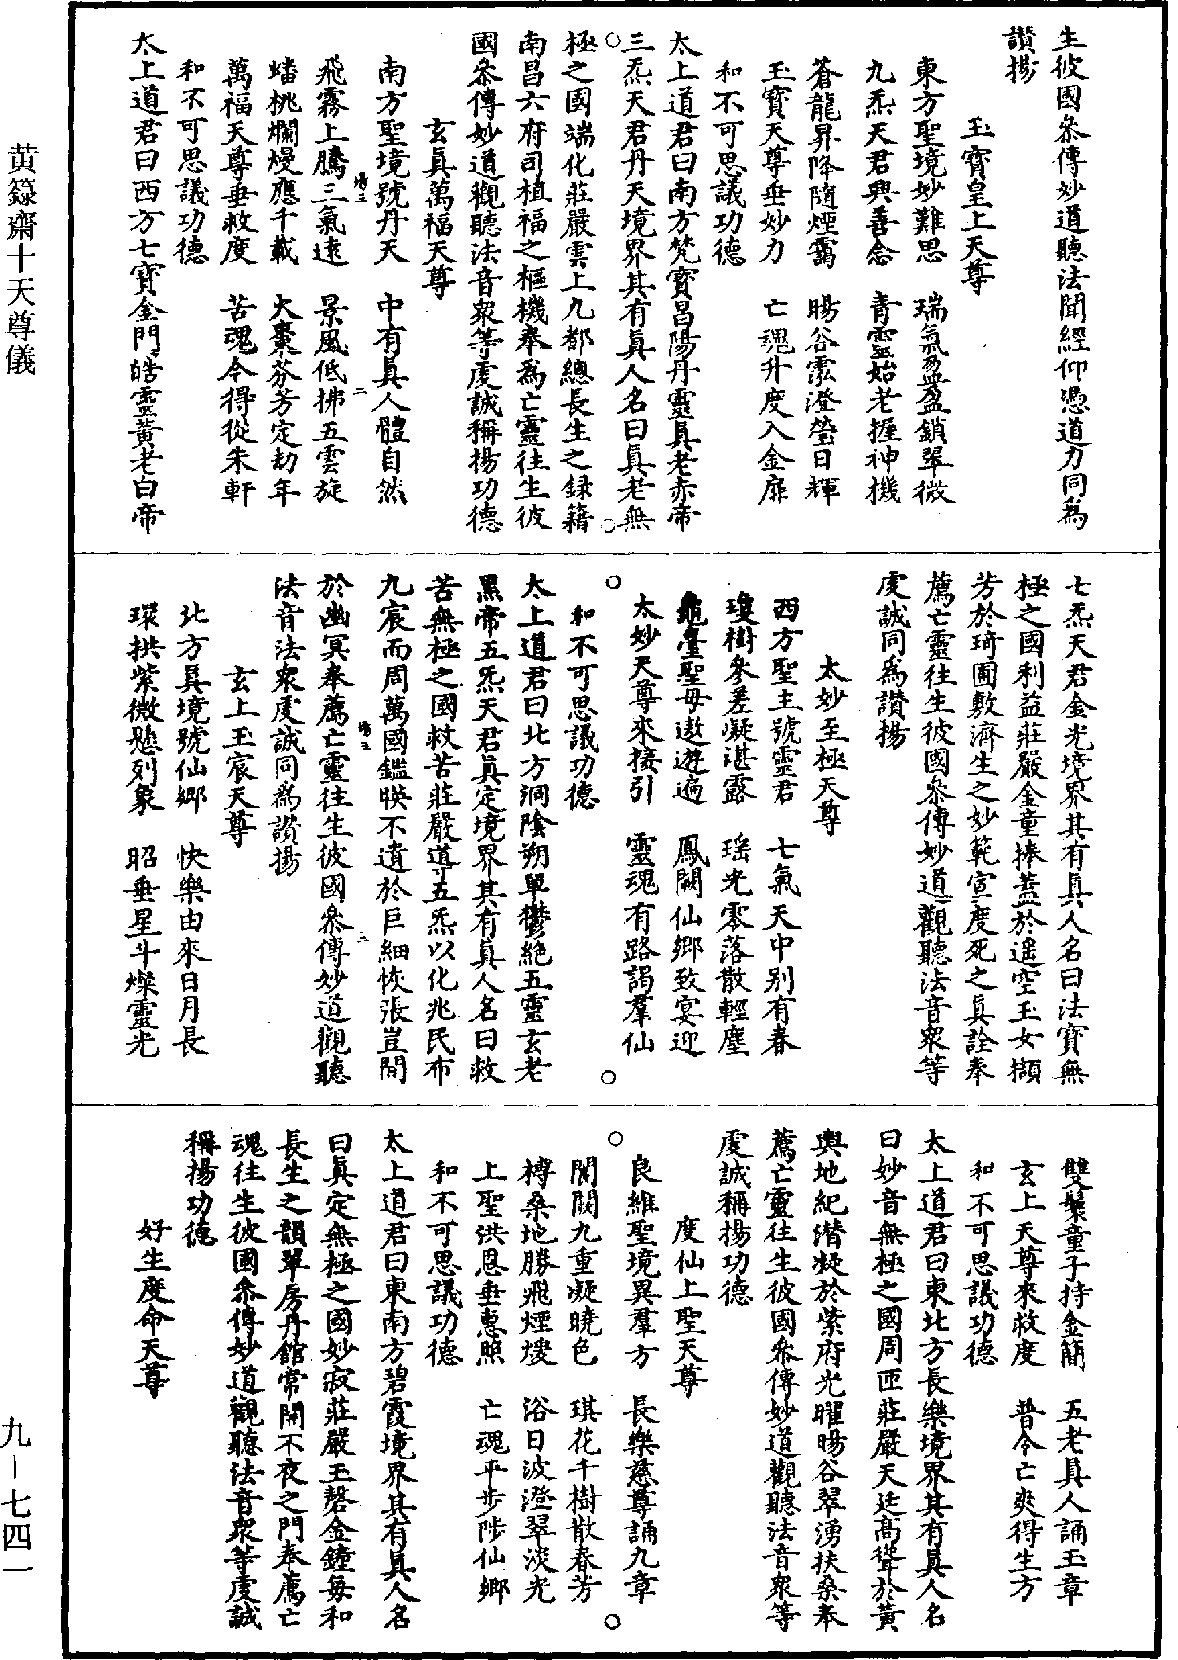 生彼國叅傳妙道聽法聞經仰憑道力同爲
讃揚
玉寶皇上天尊
東方聖境妙難思　瑞氣盈盈鎖翠微
九炁天君興善念　青靈始老握神機
蒼龍昇降隨煙靄　暘谷澄瑩日輝
玉寶天尊垂妙力　亡魂升度入金扉
和不可思議功德
太上道君曰南方梵寶昌陽丹靈真老赤帝
三炁天君丹天境界其有真人名曰真老無
極之國端化莊嚴雲上九都總長生之録籍
南昌六府司植福之樞機奉爲亡靈往生彼
國叅傳妙道觀聽法音衆等虔誠稱揚功德
玄真萬福天尊
南方聖境號丹天　中有真人體自然
飛霧上騰三氣遠　景風低拂五雲旋
蟠桃爛熳應千載　火棗芬芳定劫年
萬福天尊垂救度　苦魂令得從朱軒
和不可思議功德
太上道君曰西方七寶金門皓靈黃老白帝
七炁天君金光境界其有真人名曰法寶無
極之國利益莊嚴金童捧蓋於遥空玉女擷
芳於琦圃敷濟生之妙範宣度死之真詮奉
薦亡靈往生彼國叅傳妙道觀聽法音衆等
虔誠同爲讃揚
太妙至極天尊
西方聖主號靈君　七氣天中别有春
瓊樹參差凝湛露　瑶光零落散輕塵
龜臺聖母遨遊遍　鳳闕仙鄉致宴迎
太妙天尊來接引　靈魂有路謁羣仙
和不可思議功德
太上道君曰北方洞陰朔單鬱絶五靈玄老
黑帝五炁天君真定境界其有真人名曰救
苦無極之國救苦莊嚴導五炁以化兆民布
九宸而周萬國鑑暎不遺於巨細恢張豈間
於幽冥奉薦亡靈往生彼國叅傳妙道觀聽
法音法衆虔誠同爲讃揚
玄上玉宸天尊
北方真境號仙鄉　快樂由來日月長
環拱紫微懸列象　昭垂星斗燦靈光
雙鬟童子持金簡　五老真人誦玉章
玄上天尊來救度　普令亡爽得生方
和不可思議功德
太上道君曰東北方長樂境界其有真人名
曰妙音無極之國周匝莊嚴天廷高聳於黃
輿地紀潛凝於紫府光曜暘谷翠湧扶桑奉
薦亡靈往生彼國叅傳妙道觀聽法音衆等
虔誠稱揚功德
度仙上聖天尊
良維聖境異羣方　長樂慈尊誦九章
閬闕九重凝曉色　琪花千樹散春芳
榑桑地勝飛煙煖　浴日波澄翠淡光
上聖洪恩垂惠照　亡魂平步陟仙鄉
和不可思議功德
太上道君曰東南方碧霞境界其有真人名
曰真定無極之國妙寂莊嚴玉磬金鐘每和
長生之韻翠房丹館常開不夜之門奉薦亡
魂往生彼國叅傳妙道觀聽法音衆等虔誠
稱揚功德
好生度命天尊
黃籙齋十天尊儀
九－七四一